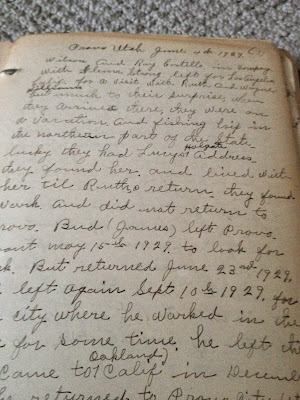 Provo Utah June 4th 1929.
Wilson and Ray Costello in company
with Glenn Strong left for Los Angeles
Calif. for a visit with Ruth and Wayne
Williams
but much to their surprise, when
they arrived there, they were on
a vacation and fishing trip in
the northern part of the State.
Holgate
lucky they had Lucy's Address
they found her, and lived with
her til Ruth's return. they found
work and did not return to
Provo. Bud (James) left Provo
may 15th 1929. to look for
But returned June 23rd 1929.
left again Sept 10th 1929. for
city where he worked in the
for some time. he left
Oakland)
Came to Calif. in
returned to Provo